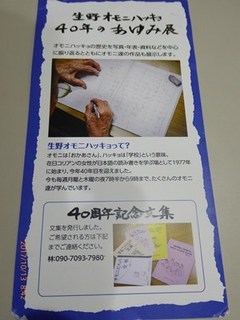 生野オモニハッキョ
40年のあゆみ展
オモニハッキョの歴史を写真・年表・資料などを中心
に振り返るとともにオモニ達の作品も展示します。
生野オモニハッキョって？
オモニは「おかあさん」、ハッキョは「学校」という意味。
在日コリアンの女性が日本語の読み書きを学ぶ場として1977年
に始まり、今年40年目を迎えました。
今も毎週月曜と木曜の夜7時半から9時まで、たくさんのオモニ
達が学んでいます。
40周年記念文集
文集を発行しました。
ご希望される方は下記
までご連絡ください。
林:090-7093-7980
2017/10/13 8:42